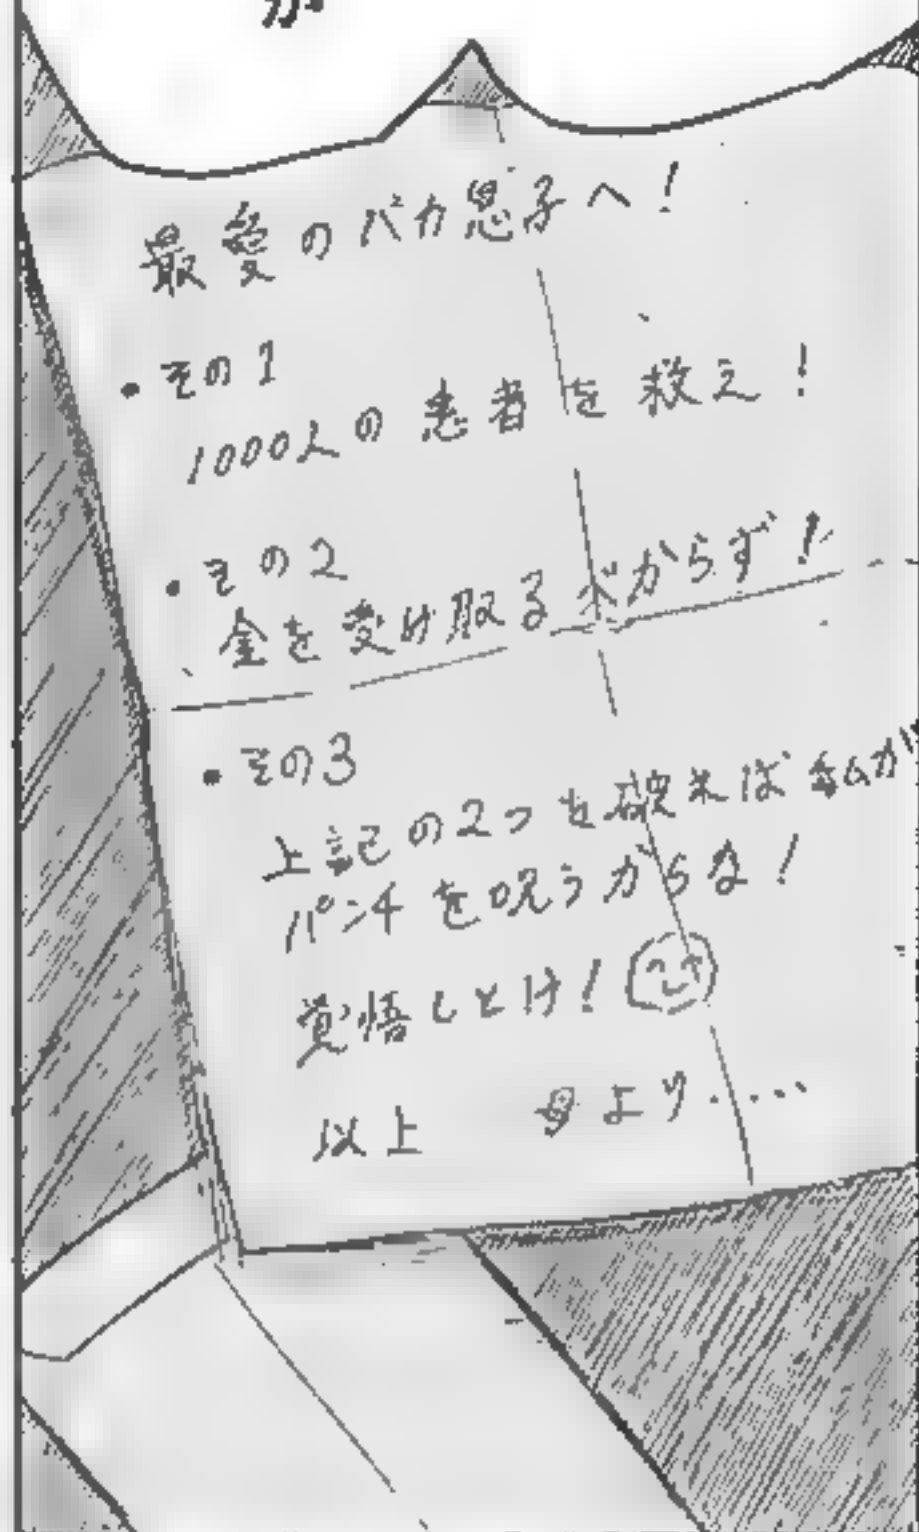 が
最愛のバカ息子へ!
・その1
1000人の患者を救え!
・その2
金を受け取るべからず!
・その3
上記の2つを破れば私が
パンチを呪うからな!
覚悟しとけ!
以上 母より.....